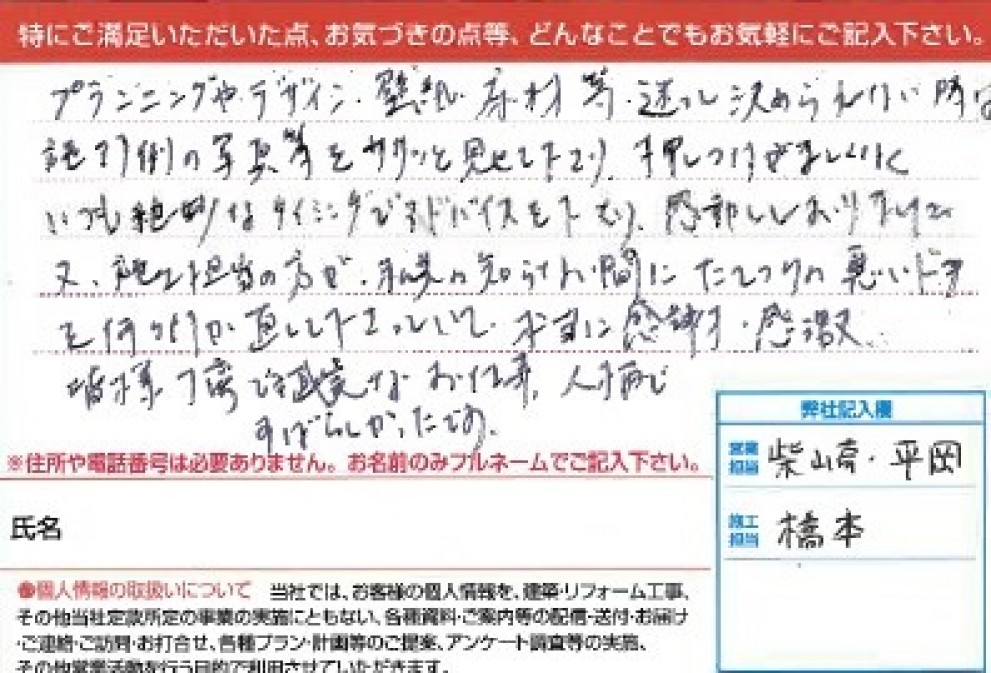 特にご満足いただいた点、お気づきの点等、どんなことでもお気軽にご記入下さい。
プランニングや、デザイン、壁紙、床材等、迷って決められない時は
施工例の写真等をササッと見せて下さり、押しつけがましくなく
いつも絶妙なタイミングでアドバイスを下さり、感謝しております
又、施工担当の方が、私共の知らない間にたてつけの悪いドア
を何ヶ所か直して下さっていて、本当に感謝・感激
皆様 丁寧で誠実なお仕事、人柄で
すばらしかったです。
※住所や電話番号は必要ありません。お名前のみフルネームでご記入下さい。
氏名
弊社記入欄
営業担当 柴山奇・平岡
施工担当 橋本
●個人情報の取扱いについて 当社では、お客様の個人情報を、建築・リフォーム工事、
その他当社定款所定の事業の実施にともない、各種資料・ご案内等の配信・送付・お届け
・ご連絡・ご訪問・お打合せ、各種プラン・計画等のご提案、アンケート調査等の実施、
その他営業活動を行う目的で利用させていただきます。